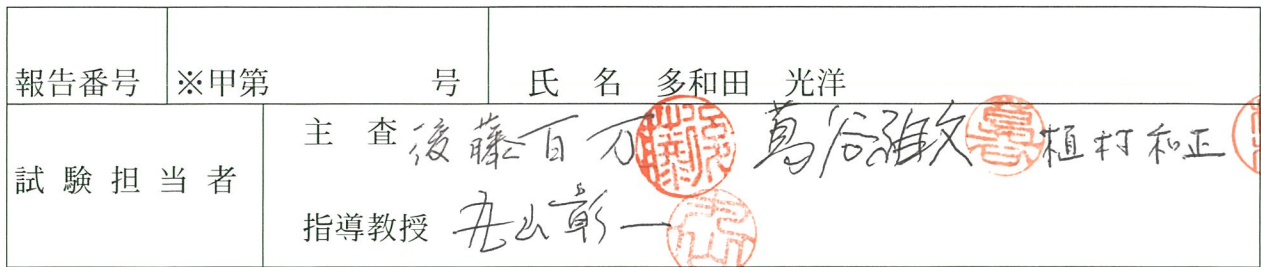 報告番号 ※甲第 号 氏 名 多和田 光洋
試験担当者
主 査 後藤百万 葛谷雅文 植村和正
指導教授 丸山彰一